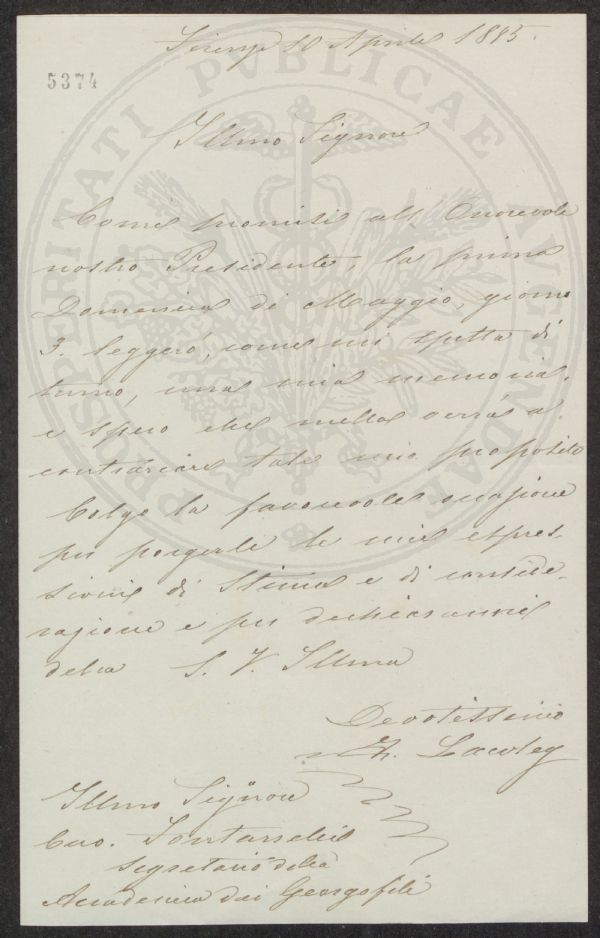 Firenze 10 Aprile 1885.
5374
PROSPERITATI PVBLICAE AVGENDAE
Illmo Signore
Come promisi all' Onorevole
nostro Presidente, la prima
Domenica di Maggio, giorno
3. leggerò, come mi spetta di
turno, una mia memoria,
e spero che nulla verrà a
contrariare tale mio proposito
Colgo la favorevole occasione
per porgerle le mie espres-
sioni di Stima e di conside-
razione e per dichiararmi
della S. V. Illma
Devotissimo
Lawley
Illmo Signore
Cav.
Segretario della
Accademia dei Georgofili